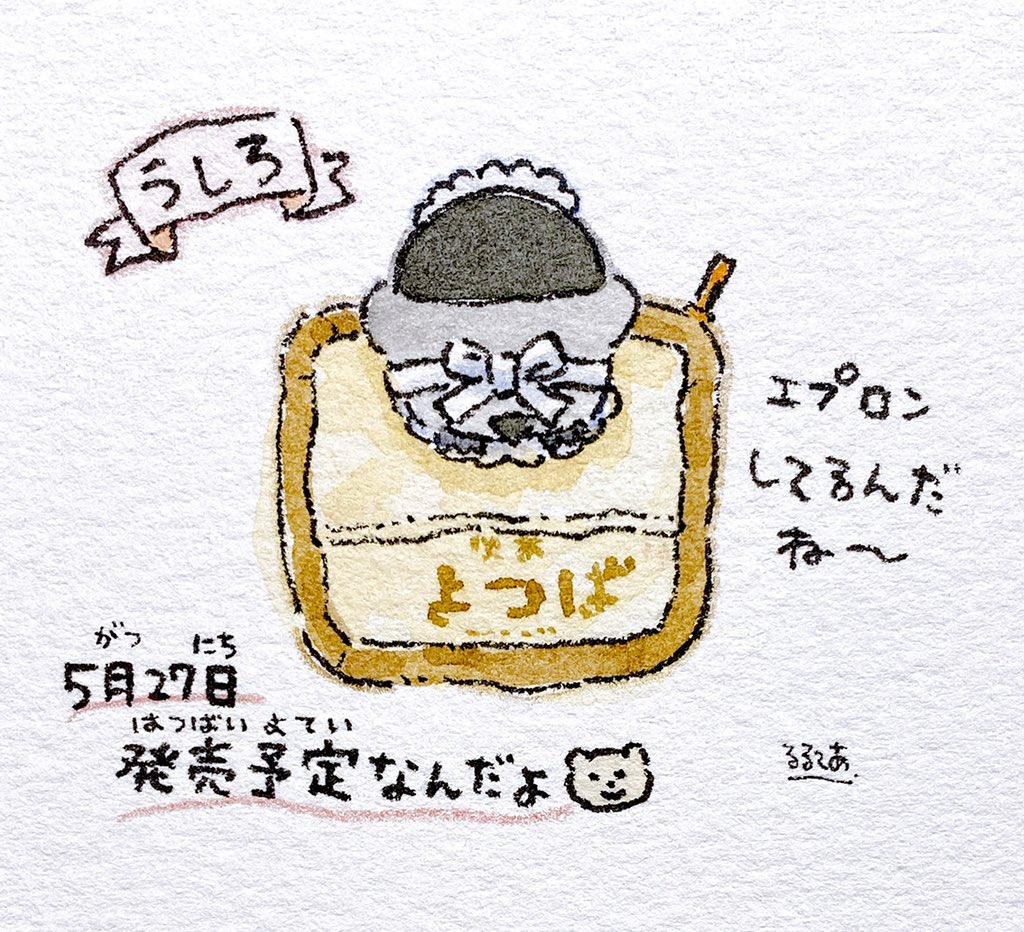 うしろ
エプロン
してるんだ
ね〜
よつば
がつ にち
5月27日
はつばい よてい
発売予定なんだよ
るるてあ